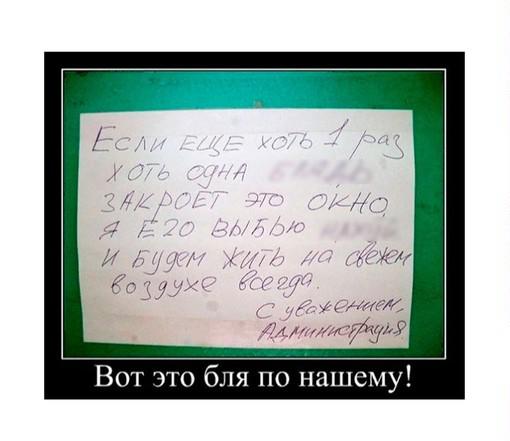 Если ЕЩЕ хоть 1 раз
хоть одна
ЗАКРОЕТ это ОКНО,
Я ЕГО ВЫБЬЮ
и будем жить на свежем
воздухе всегда.
С уважением,
Администрация
Вот это бля по нашему!